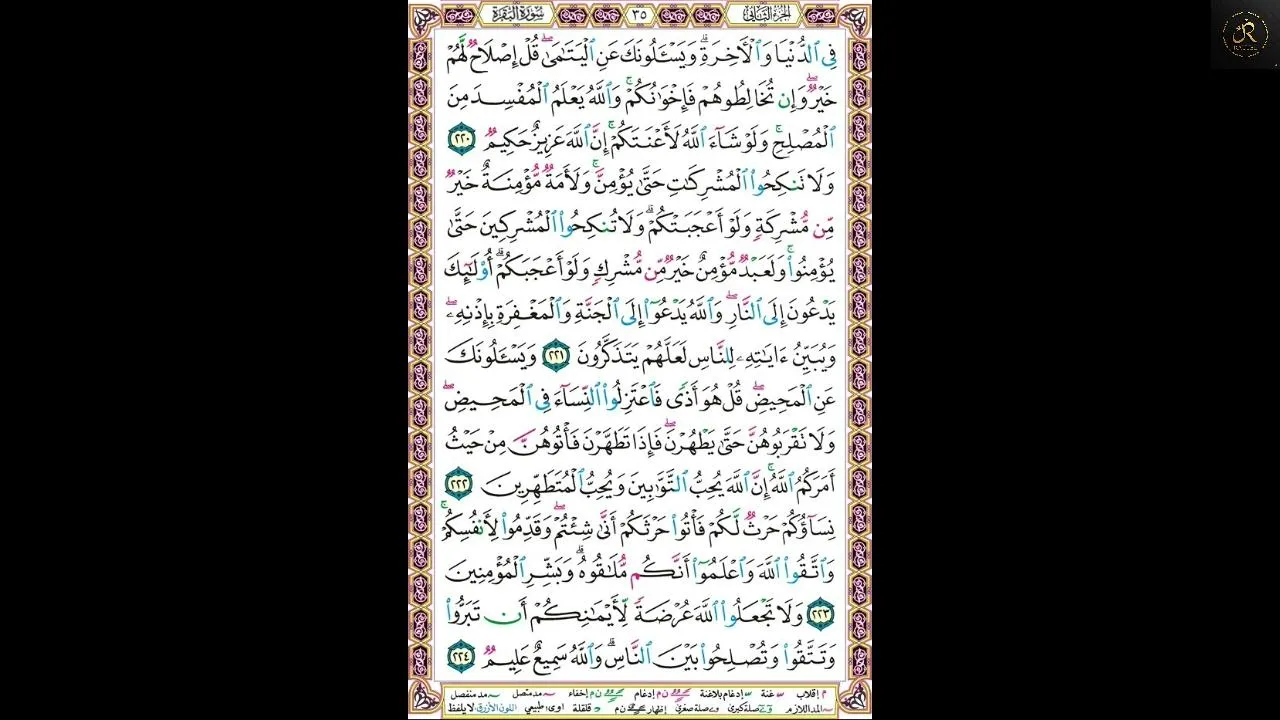 الجزء الثاني ٣٥ سورة البقرة
فِى ٱلدُّنْيَا وَٱلْأٓخِرَةِ ۗ وَيَسْـَٔلُونَكَ عَنِ ٱلْيَتَٰمَىٰ ۖ قُلْ إِصْلَاحٌ لَّهُمْ
خَيْرٌ ۖ وَإِن تُخَالِطُوهُمْ فَإِخْوَٰنُكُمْ ۚ وَٱللَّهُ يَعْلَمُ ٱلْمُفْسِدَ مِنَ
ٱلْمُصْلِحِ ۚ وَلَوْ شَآءَ ٱللَّهُ لَأَعْنَتَكُمْ ۚ إِنَّ ٱللَّهَ عَزِيزٌ حَكِيمٌ ٢٢٠
وَلَا تَنكِحُوا۟ ٱلْمُشْرِكَٰتِ حَتَّىٰ يُؤْمِنَّ ۚ وَلَأَمَةٌ مُّؤْمِنَةٌ خَيْرٌ
مِّن مُّشْرِكَةٍ وَلَوْ أَعْجَبَتْكُمْ ۗ وَلَا تُنكِحُوا۟ ٱلْمُشْرِكِينَ حَتَّىٰ
يُؤْمِنُوا۟ ۚ وَلَعَبْدٌ مُّؤْمِنٌ خَيْرٌ مِّن مُّشْرِكٍ وَلَوْ أَعْجَبَكُمْ ۗ أُو۟لَٰٓئِكَ
يَدْعُونَ إِلَى ٱلنَّارِ ۖ وَٱللَّهُ يَدْعُوٓا۟ إِلَى ٱلْجَنَّةِ وَٱلْمَغْفِرَةِ بِإِذْنِهِۦ ۖ
وَيُبَيِّنُ ءَايَٰتِهِۦ لِلنَّاسِ لَعَلَّهُمْ يَتَذَكَّرُونَ ٢٢١ وَيَسْـَٔلُونَكَ
عَنِ ٱلْمَحِيضِ ۖ قُلْ هُوَ أَذًى فَٱعْتَزِلُوا۟ ٱلنِّسَآءَ فِى ٱلْمَحِيضِ ۖ
وَلَا تَقْرَبُوهُنَّ حَتَّىٰ يَطْهُرْنَ ۖ فَإِذَا تَطَهَّرْنَ فَأْتُوهُنَّ مِنْ حَيْثُ
أَمَرَكُمُ ٱللَّهُ ۚ إِنَّ ٱللَّهَ يُحِبُّ ٱلتَّوَّٰبِينَ وَيُحِبُّ ٱلْمُتَطَهِّرِينَ ٢٢٢
نِسَآؤُكُمْ حَرْثٌ لَّكُمْ فَأْتُوا۟ حَرْثَكُمْ أَنَّىٰ شِئْتُمْ ۖ وَقَدِّمُوا۟ لِأَنفُسِكُمْ ۚ
وَٱتَّقُوا۟ ٱللَّهَ وَٱعْلَمُوٓا۟ أَنَّكُم مُّلَٰقُوهُ ۗ وَبَشِّرِ ٱلْمُؤْمِنِينَ
٢٢٣ وَلَا تَجْعَلُوا۟ ٱللَّهَ عُرْضَةً لِّأَيْمَٰنِكُمْ أَن تَبَرُّوا۟
وَتَتَّقُوا۟ وَتُصْلِحُوا۟ بَيْنَ ٱلنَّاسِ ۗ وَٱللَّهُ سَمِيعٌ عَلِيمٌ ٢٢٤
م إقلاب غنة إدغام بلاغنة ن م إدغام ن م إخفاء مد متصل مد منفصل
المد اللازم صلة كبرى صلة صغرى إظهار ن م قلقلة اوى، طبيعي اللون الأزرق لا يلفظ